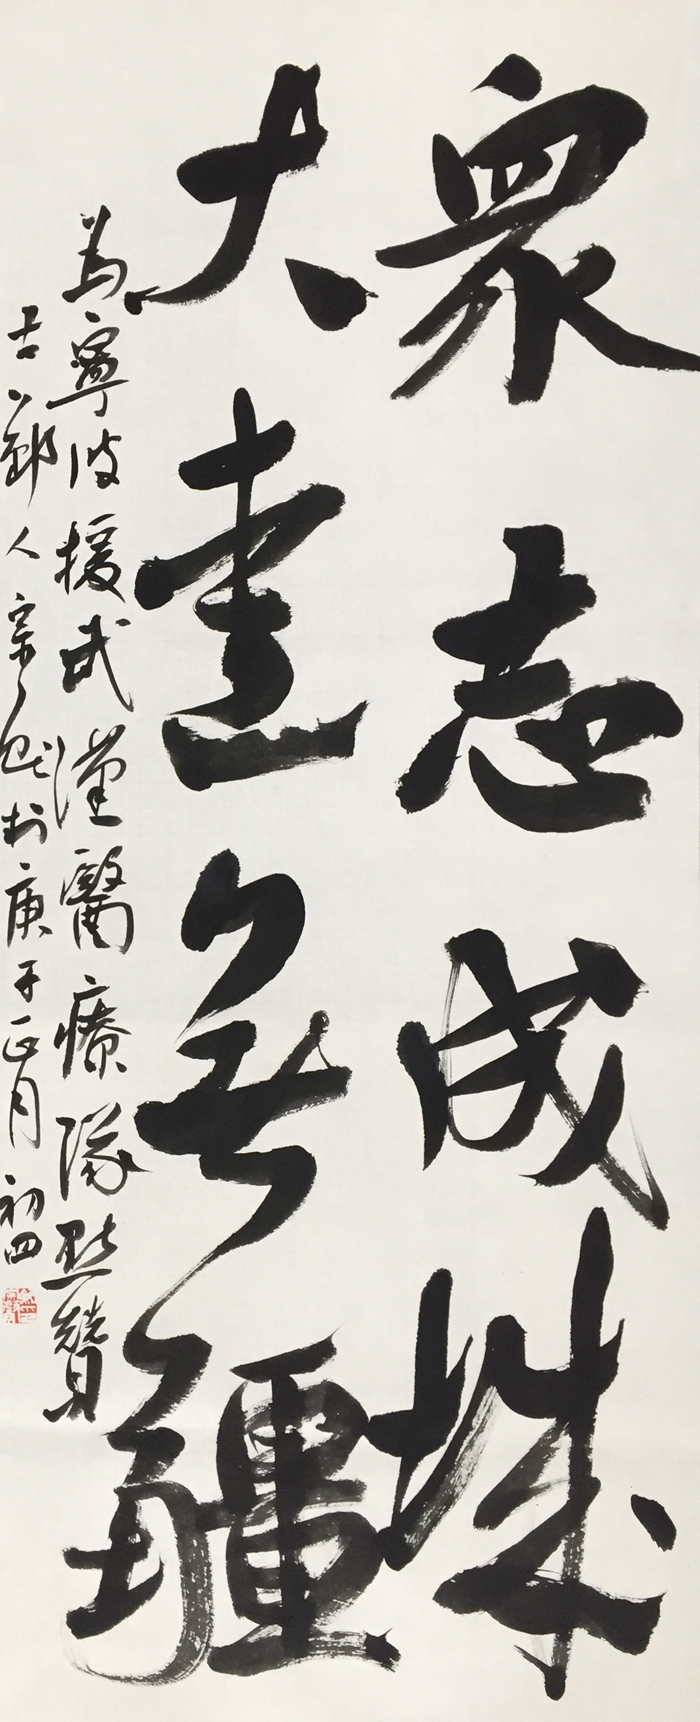 眾志成城
大無疆
為寧波援武漢醫療隊點贊
古人宗於庚子正月初四